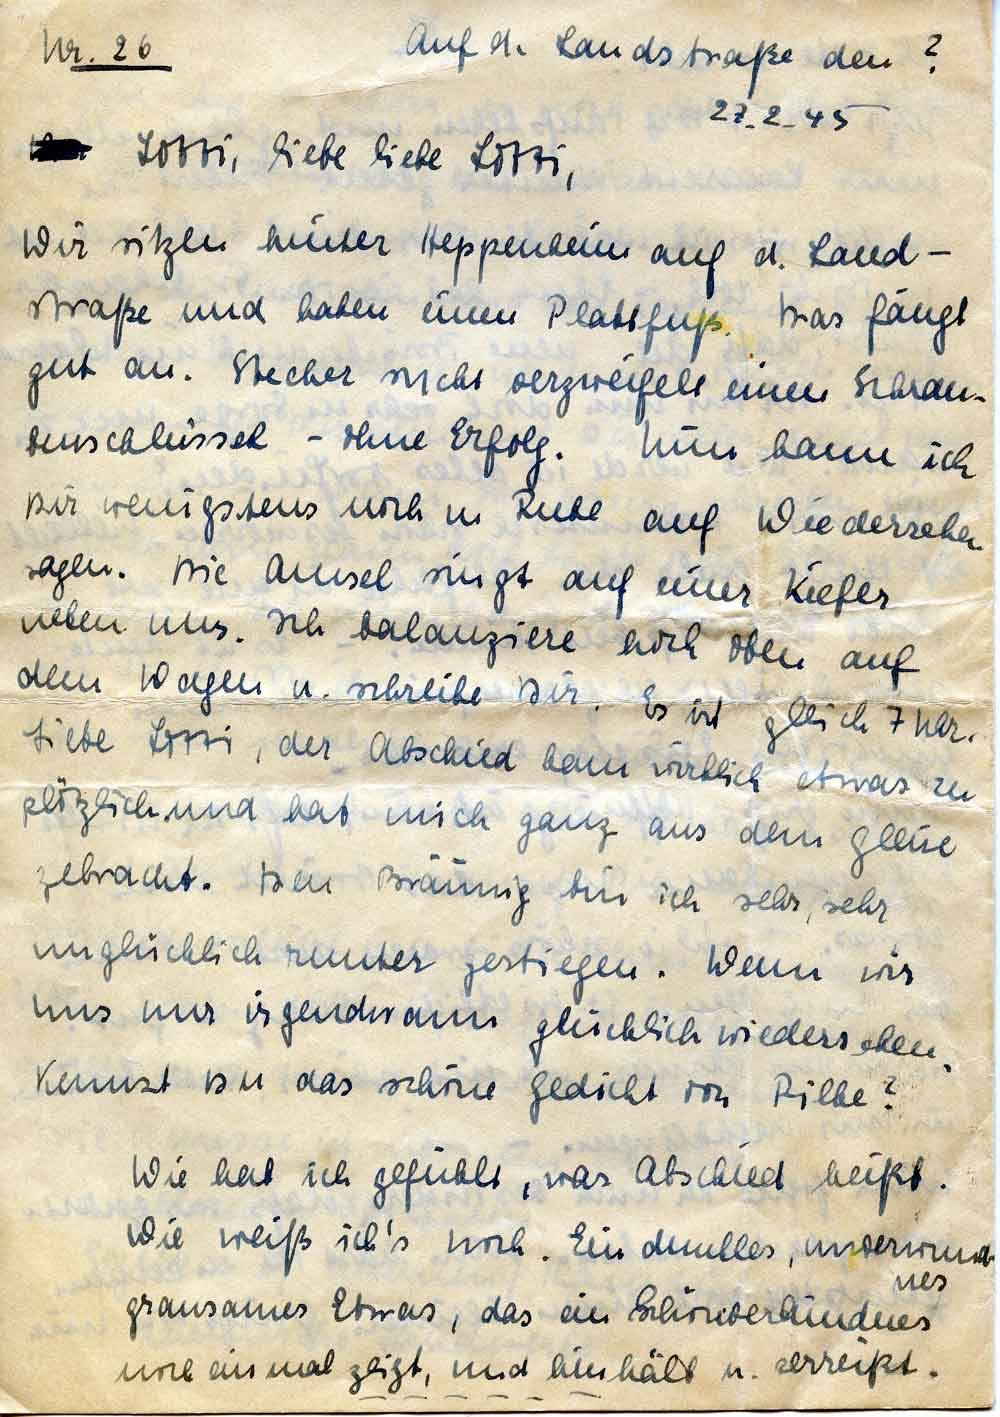 Nr. 26
Auf d. Landstraße den ?
27.2.45
Lotti, liebe liebe Lotti,
Wir sitzen hinter Heppenheim auf d. Land-
straße und haben einen Plattfuß. Das fängt
gut an. Stecher sucht verzweifelt einen Schrau-
benschlüssel - ohne Erfolg. Nun kann ich
Dir wenigstens noch in Ruhe auf Wiedersehen
sagen. Die Amsel singt auf einer Kiefer
neben uns. Ich balanziere hoch oben auf
dem Wagen u. schreibe Dir. Es ist gleich 7 Uhr.
Liebe Lotti, der Abschied kam wirklich etwas zu
plötzlich und hat mich ganz aus dem Gleise
gebracht. Den Bräunig bin ich sehr, sehr
unglücklich runter gestiegen. Wenn wir
uns nur irgendwann glücklich wiedersehen.
Kennst Du das schöne Gedicht von Rilke?
Wie hab ich gefühlt, was Abschied heißt.
Wie weiß ich's noch. Ein dunkles, unverwund-
nes
grausames Etwas, das ein Schönverbundnes
noch einmal zeigt, und hinhält u. zerreißt.